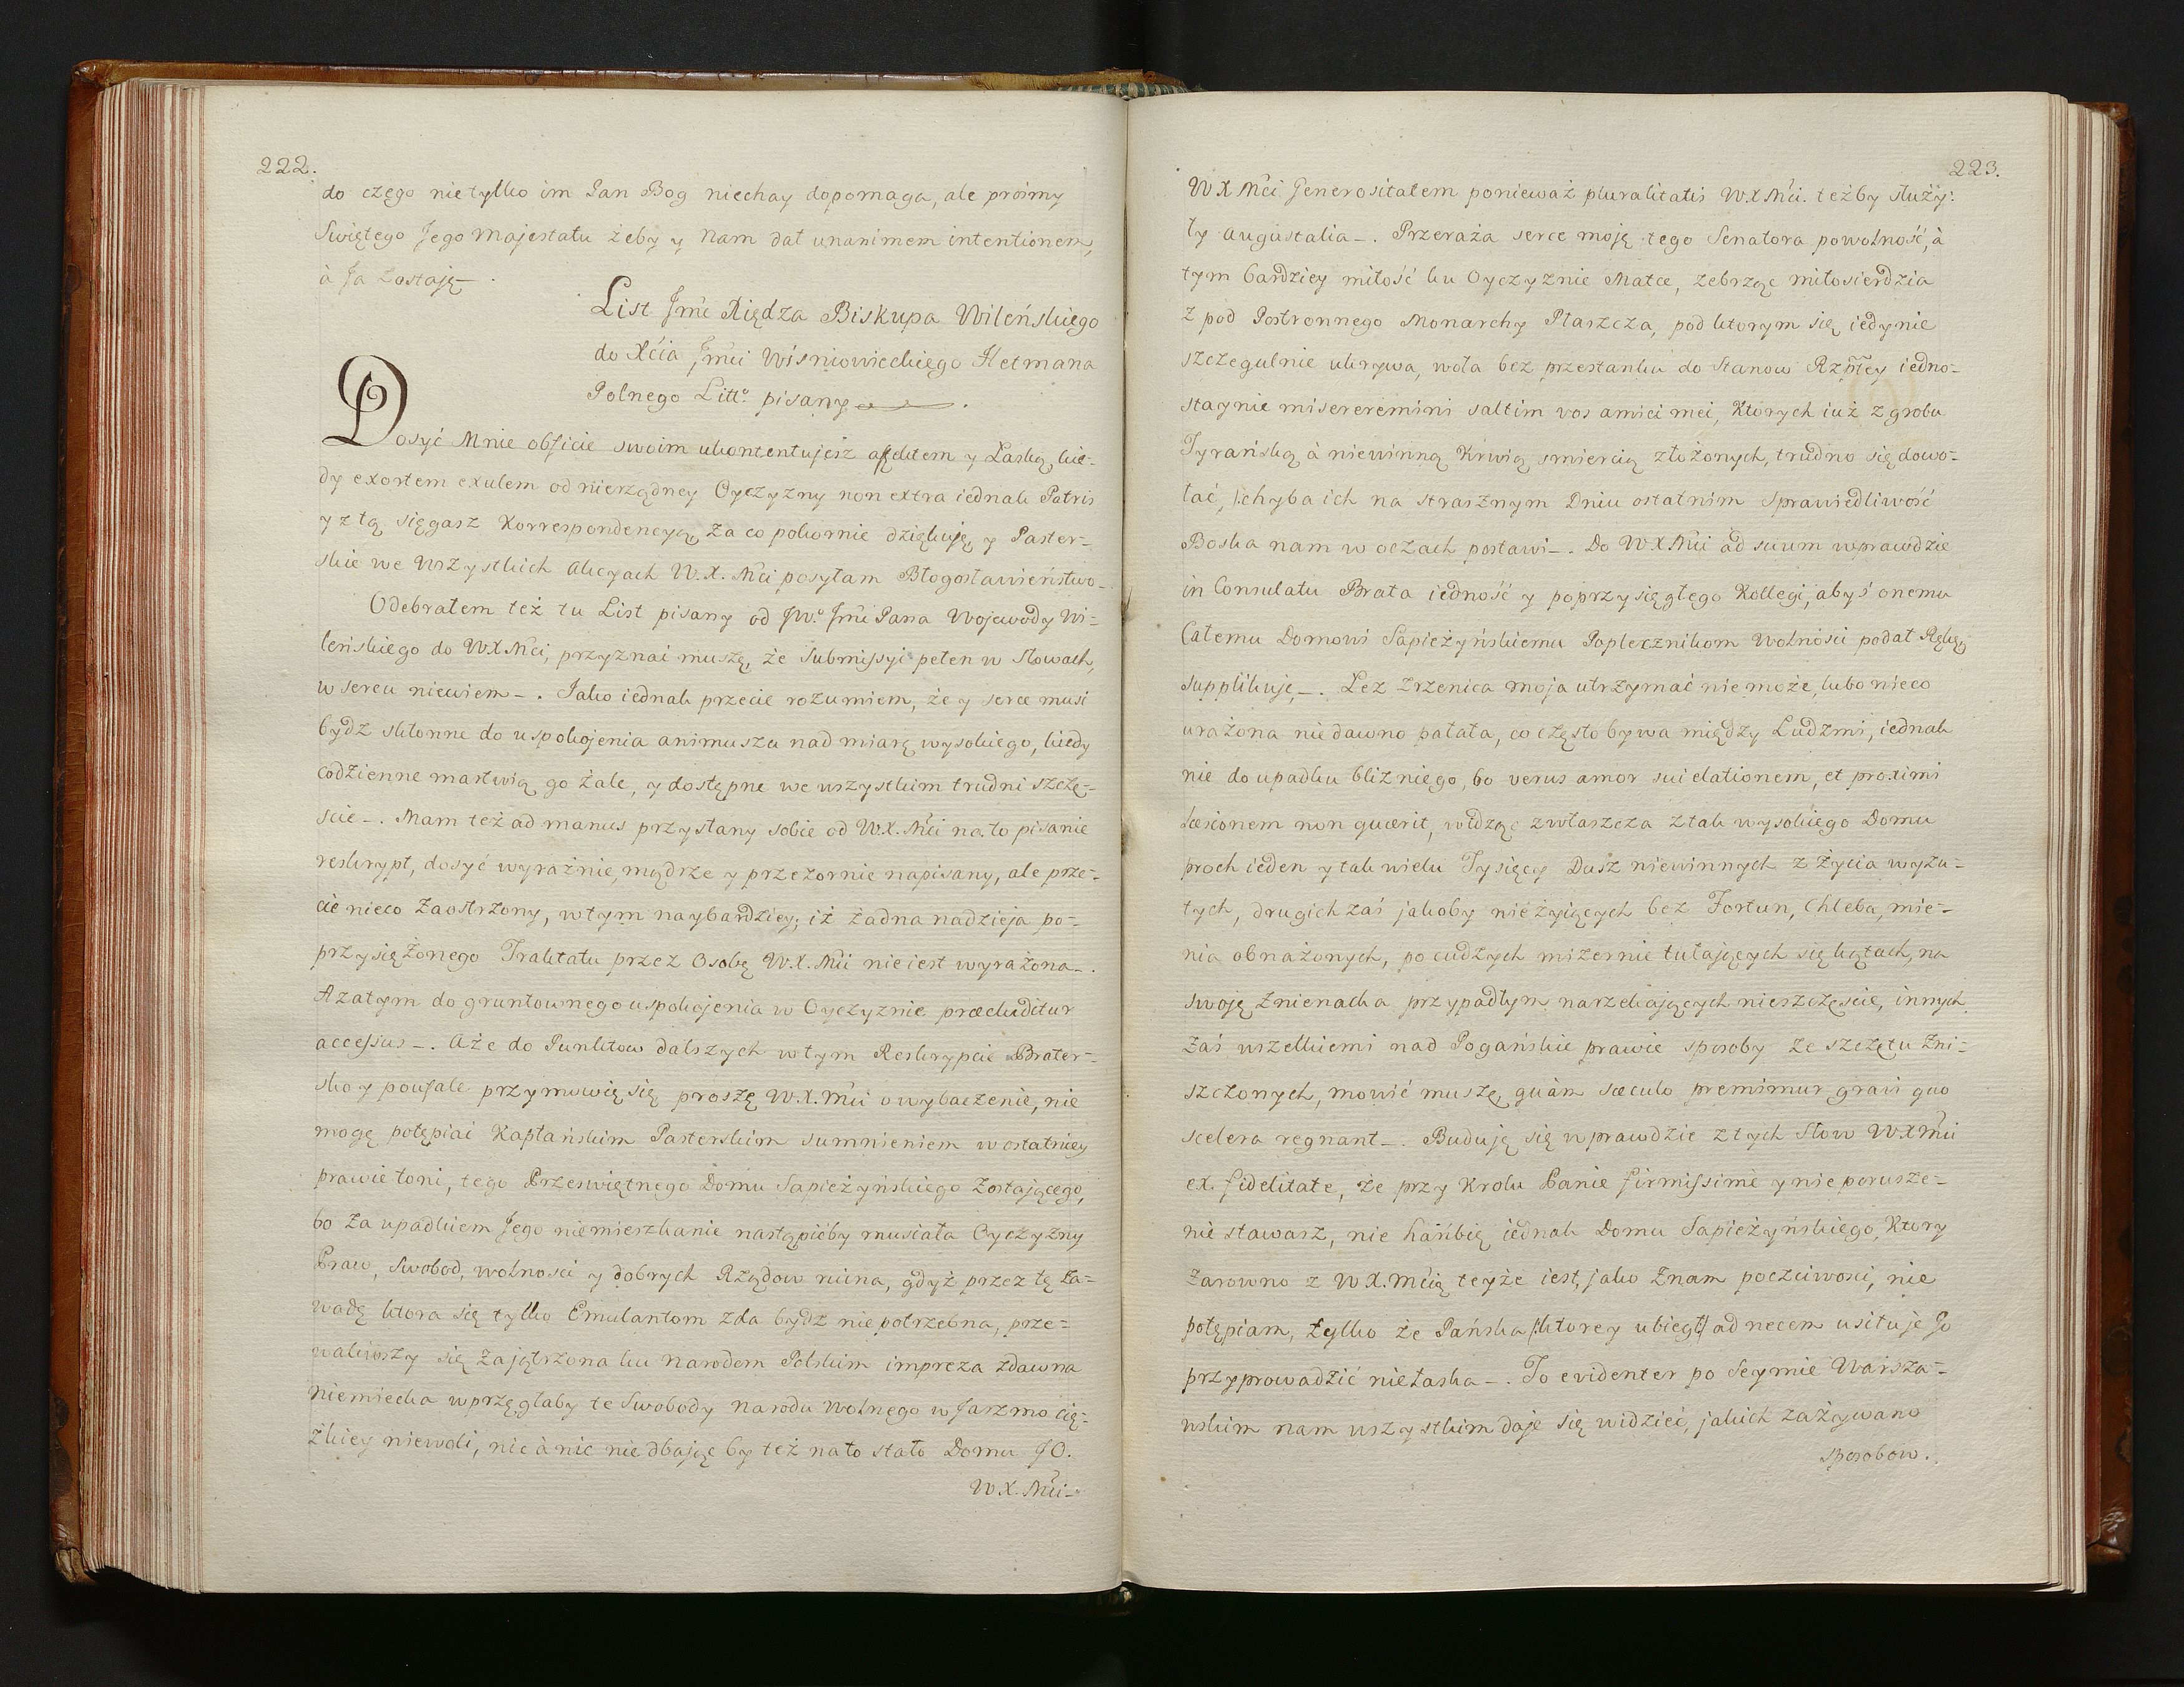 222.
do czego nietylko im Pan Bog niechay dopomaga, ale prosmy
Swiętego Jego Majestatu żeby y Nam dał unanimem intentionem,
à Ja zostaję –.
List Jmć Xiędza Biskupa Wileńskiego
do Xcia Jmći Wisniowieckiego Hetmana
Polnego Litto. pisany
Dosyć Mnie obficie swoim ukontentujesz afektem y Łaską, kie=
dy exortem exulem od nierządney Oyczyzny non extra iednak Patris
y z tą sięgasz Korrespondencyą, za co pokornie dziękuję y Paster=
skie we wszystkich akcyach W.X.Mći posyłam Błogosławieństwo –
Odebrałem też tu List pisany od JWo Jmć Pana Wojewody Wi=
leńskiego do WXMći, przyznai muszę, że Submissyi pełen w Słowach,
w sercu niewiem –. Jako iednak przecie rozumiem, że y serce musi
bydz skłonne do uspokojenia animuszu nad miarę wysokiego, kiedy
codzienne martwią go żale, y dostępne we wszystkim trudni szczę=
scie –. Mam też ad manus przysłany sobie od W.X.Mći na to pisanie
reskrypt, dosyć wyraźnie, mądrze y przezornie napisany, ale prze=
cie nieco zaostrzony, w tym naybardziey, iż żadna nadzieja po=
przysiężonego Traktatu przez Osobę W.X.Mći nie iest wyrażona –.
A zatym do gruntownego uspokojenia w Oyczyznie præcluditur
accessus –. Aże do Punktow dalszych w tym Reskrypcie Brater=
sko y poufale przymowię się, proszę W.X.Mći o wybaczenie, nie
mogę potępiai Kapłańskim Pasterskim sumnieniem w ostatniey
prawie toni, tego Przeswiętnego Domu Sapieżyńskiego zostającego,
bo za upadkiem Jego niemieszkanie nastąpićby musiała Oyczyzny
Praw, Swobod, wolnosci y dobrych Rządow ruina, gdyż przez tę za=
wadę ktora się tylko Emulantom zda bydz niepotrzebna, prze=
waliwszy się zajątrzona ku Narodom Polskim impreza zdawna
niemiecka wprzęgłaby te Swobody Narodu Wolnego w Jarzmo cię=
żkiey niewoli, nic à nic nie dbając by też na to stało Domu JO.
W.X.Mći –
223.
WXMći Generositatem ponieważ pluralitatis W.X.Mći. teżby służy=
ły augustalia –. Przeraża serce moję tego Senatora powolność, à
tym bardziey miłość ku Oyczyznie Matce, żebrząc miłosierdzia
z pod Postronnego Monarchy Płaszcza, pod ktorym się iedynie
szczegulnie ukrywa, woła bez przestanku do Stanow Rzpltey iedno=
staynie miseremini saltim vos amici mei, Ktorych iuż z grobu
Tyrańską à niewinną Krwią smiercią złożonych, trudno się dowo=
łać, chyba ich na strasznym Dniu ostatnim Sprawiedliwość
Boska nam w oczach postawi –. Do WXMći ad suum wprawdzie
in Consulatu Brata iedność y poprzysięgłego Kollegi, abyś onemu
Całemu Domowi Sapieżyńskiemu Poplecznikom Wolności podał Rękę,
supplikuję –. Łez zrzenica moja utrzymać nie może, lubo nieco
urażona niedawno pałała, co często bywa między Ludzmi, iednak
nie do upadku bliźniego, bo verus amor sui elationem, et proximi
læsionem non quærit, widząc zwłaszcza z tak wysokiego Domu
proch ieden y tak wielu Tysięcy Dusz niewinnych z życia wyzu=
tych, drugich zaś jakoby nieżyiących bez Fortun, Chleba, mie=
nia obnażonych, po cudzych mizernie tułających się kątach, na
swoję znienacka przypadłym narzekających nieszczęscie, innych
Zaś wszelkiemi nad Pogańskie prawie sposoby ze szczętu zni=
szczonych, mowić muszę, quàm sæculo premimur gravi quo
scelera regnant –. Buduję się wprawdzie z tych Słow WXMći
ex fidelitate, że przy Krolu Panie firmissimè y nie porusze=
nie stawasz, nie hańbię iednak Domu Sapieżyńskiego, Ktory
zarowno z W.X.Mćią teyże iest, jako znam poczciwosci, nie
potępiam, tylko że Pańska /:ktorey ubiegł:/ ad necem usituje Jo
przyprowadzić niełaska –. To evidenter po Seymie Warsza=
wskim nam wszystkim daje się widzieć, jakich zażywano
sposobow.